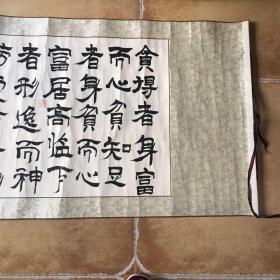 貪得者身富
而心貧知足
者身貧而心
富居高臨下
者形逸而神